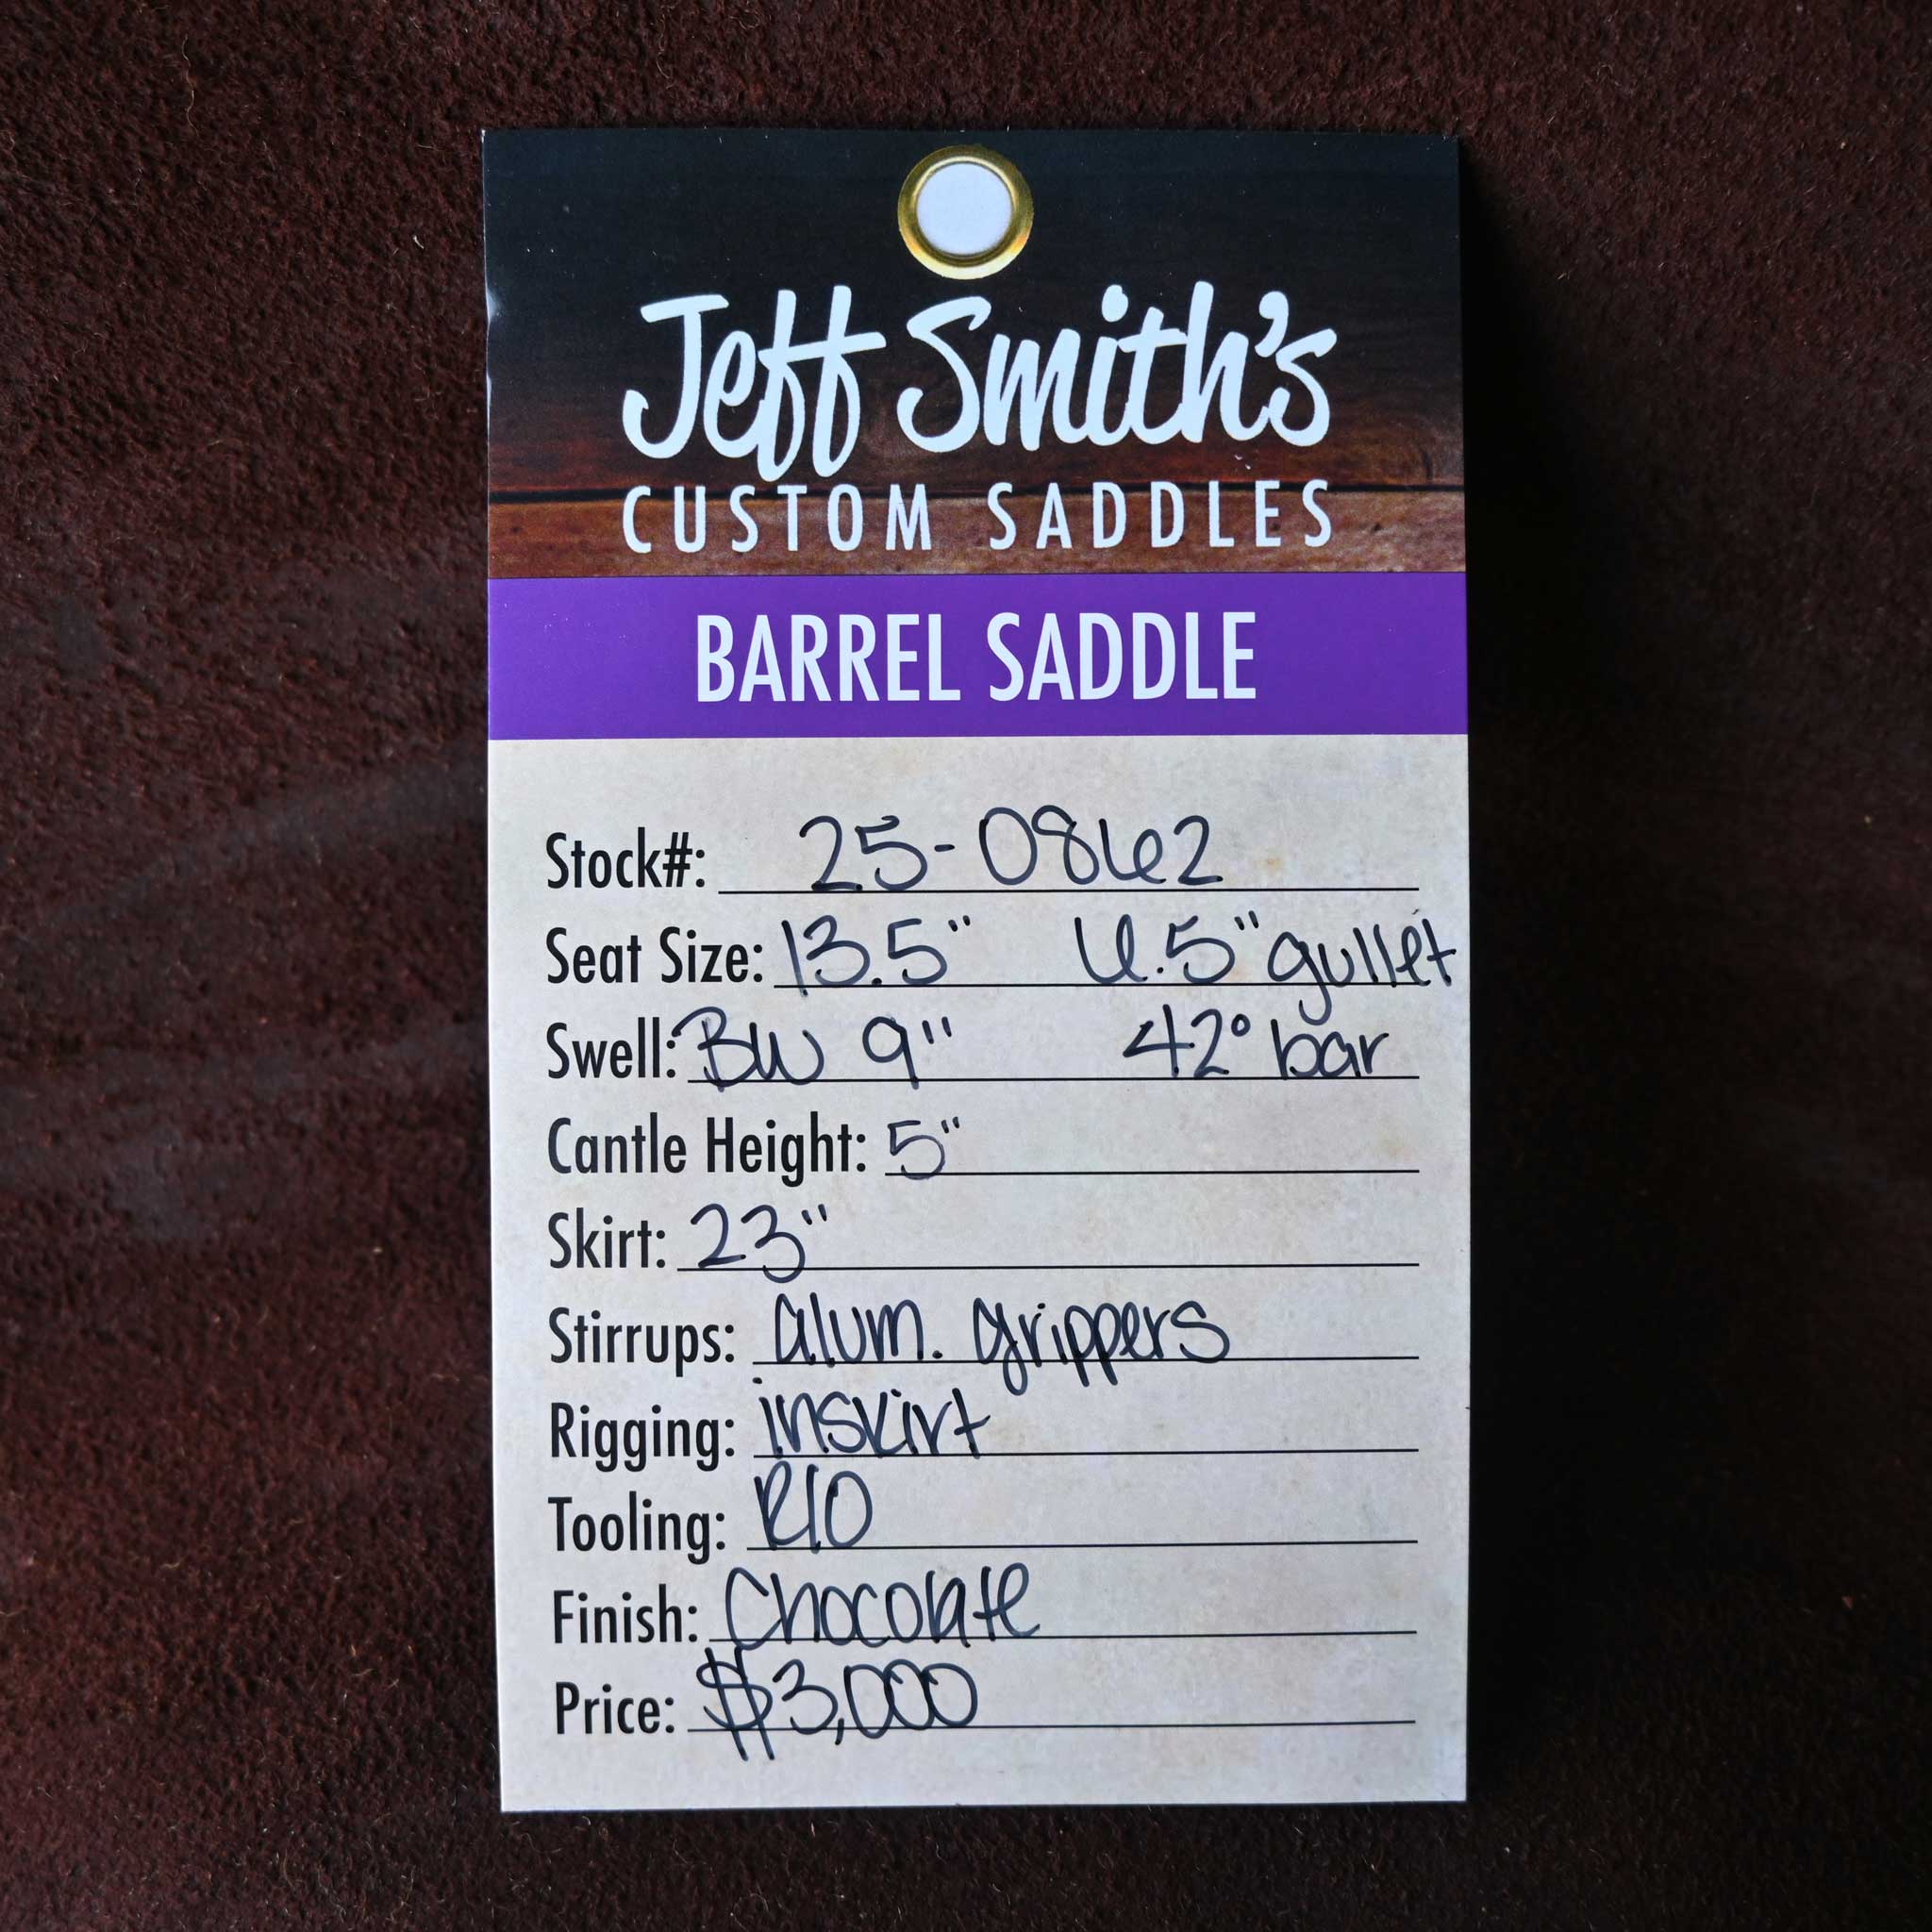 Jeff Smith's
CUSTOM SADDLES
BARREL SADDLE
Stock#: 25-0862
Seat Size: 13.5" 6.5" gullet
Swell: BW 9" 42° bar
Cantle Height: 5"
Skirt: 23"
Stirrups: alum. grippers
Rigging: inskirt
Tooling: RIO
Finish: Chocolate
Price: $3,000